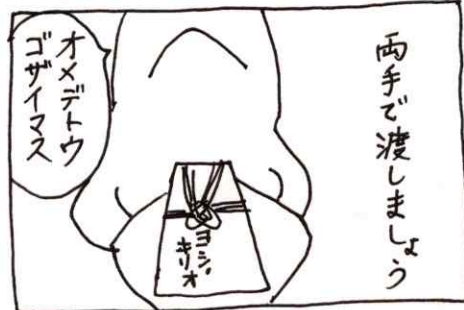 両手で渡しましょう
オメデトウ
ゴザイマス
ヨシ、
キリオ